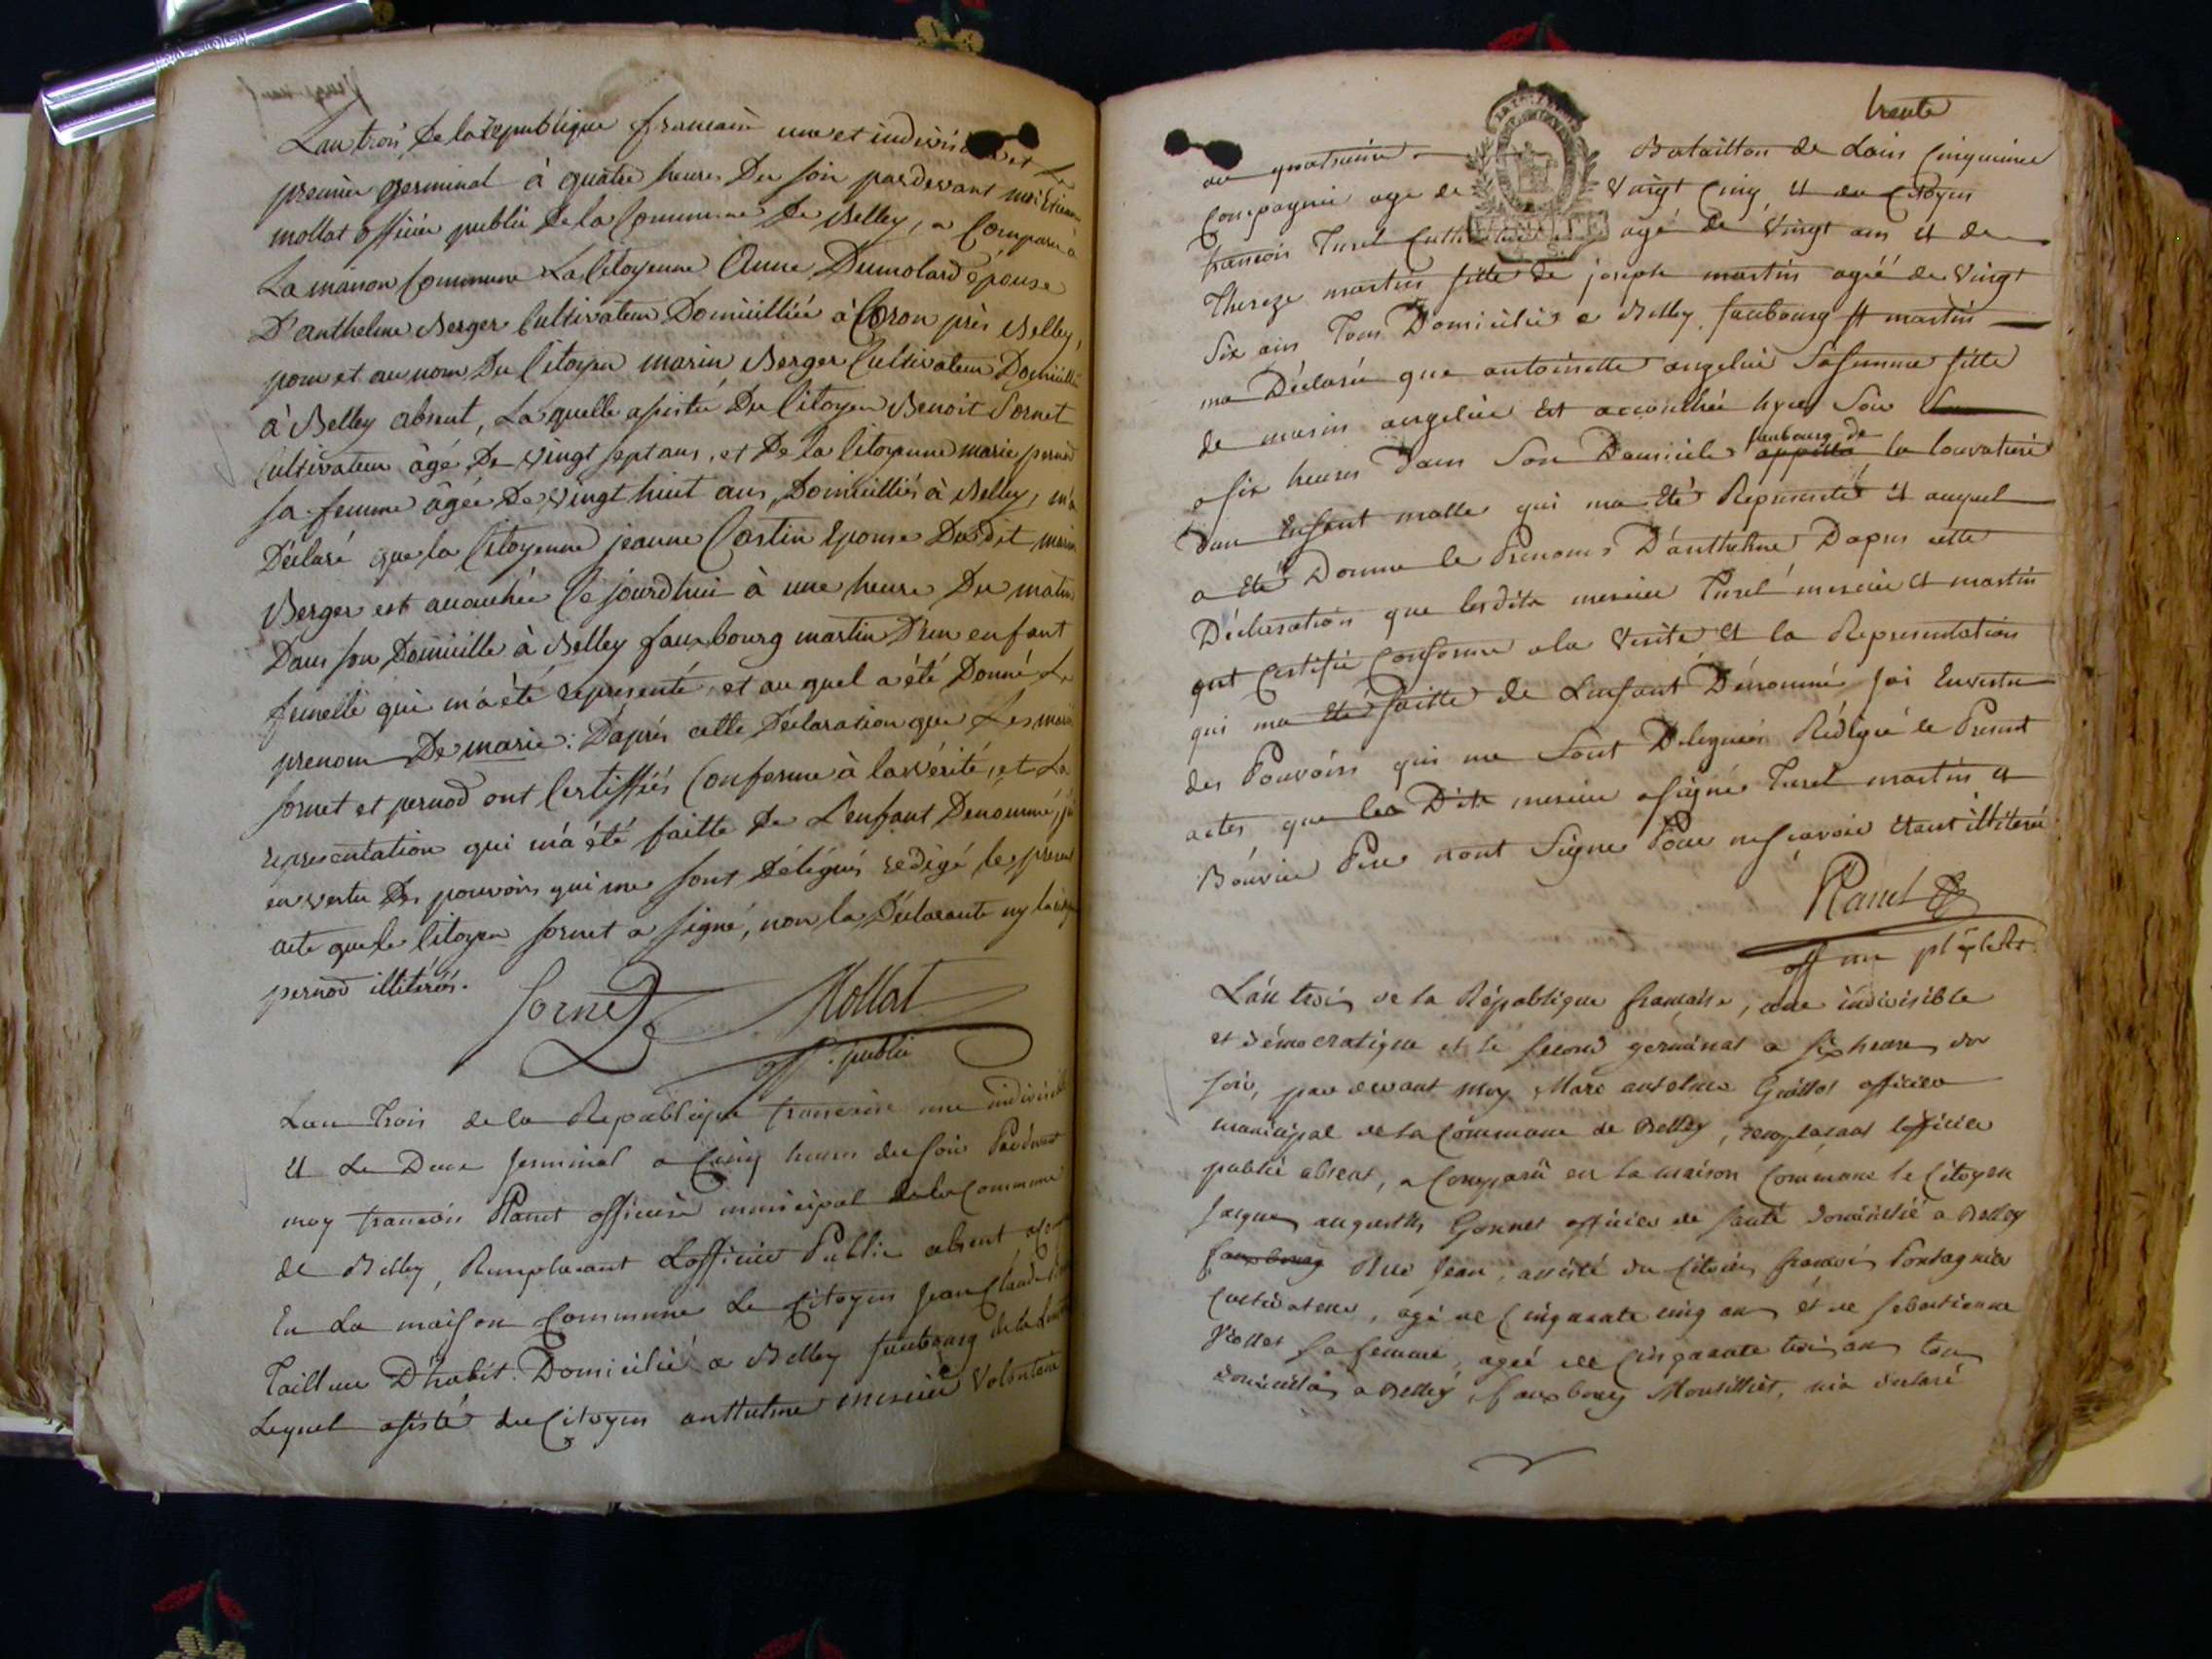 L'an trois De la republique francaise une et indivisible et Le
premier germinal à quatre heures Du soir pardevant moi Etienne
mollat officier public De la Commune De Belley, a Comparu à
La maison Commune La Citoyenne Anne Dumolard épouse
D'anthelme Berger Cultivateur Domicilliée à Coron près Belley,
pour et au nom Du Citoyen marin Berger Cultivateur Domicillié
à Belley absent, La quelle assistée Du Citoyen Benoit Sornet
Cultivateur âgé De vingt sept ans, et De la Citoyenne marie pernod
sa femme âgée De vingt huit ans, Domicilliés à Belley, m'a
Déclaré que la Citoyenne jeanne Costin épouse Dudit marin
Berger est accouchée Ce jourdhui à une heure Du matin
Dans son Domicille à Belley fauxbourg martin D'un enfant
femelle qui m'a été représenté et au quel a été Donné Le
prenom De marie. D'après cette Déclaration que Les
sornet et pernod ont Certiffiés Conforme à la vérité, et La
représentation qui m'a été faitte De L'enfant Dénommé, j'ai
en vertu Des pouvoirs qui me sont Délégués redigé le present
acte que le Citoyen sornet a signé, non la Déclarante ny la
pernod illitérés.
Sornet Mollat
off. public
L'an trois de la Republique francaise une indivisible
et Le Deux Jerminal a Cinq heures du soir Pardevant
moy francois Ranet officier municipal de la Commune
de Belley, Remplacant Lofficier Public absent
En La maison Commune Le Citoyen Jean Claude
Tailleur D'habit Domicilié a Belley faubourg de la
Lequel assisté du Citoyen anthelme mercier Volontaire
trente
au quatrieme Bataillon de Lain Cinquieme
Compagnie age de Vingt Cinq, et du Citoyen
francois Turel agé de Vingt ans et de
Thereze martin fille de joseph martin ageé de Vingt
Six ans Tous Domiciliés a Belley faubourg st martin
ma Déclaré que antoinette angelier Sa femme fille
de marin angelier Est accouchée hyer Soir
a six heures dans Son Domicile faubourg de la Louvatiere
Dun Enfant malle qui ma Eté Representé et auquel
a Eté Donne le Prenoms D'anthelme Dapres cette
Déclaration que lesdits mercier Turel mercier et martin
ont Certifié Conforme a la Verité et la Representation
qui ma Eté faitte de Lenfant Dénommé jai Envertu
des Pouvoirs qui me Sont Delegués Rédigé le Present
actes que les Dits mercier a signé Turel martin et
Pere nont Signe Pour ne scavoir étant illiteré
Ranet
off mu
L'an trois de la République francaise, une indivisible
et démocratique et le second germinal a six heures du
soir, par devant moy Marc antelme Grillot officier
municipal de la Commune de Belley, remplacant lofficier
public absent, a Comparû en la maison Commune le Citoyen
Jacques augustin Gonnet officier de santé domicilié a Belley
fauxbourg Rue Jean, assisté du Citoien francois Pontagnier
Cultivateur, agé de Cinquante cinq ans et de sebastienne
Viollet sa femme, ageé de Cinquante trois ans tous
domiciliés a Belley, fauxbourg Monsilliet, m'a declaré